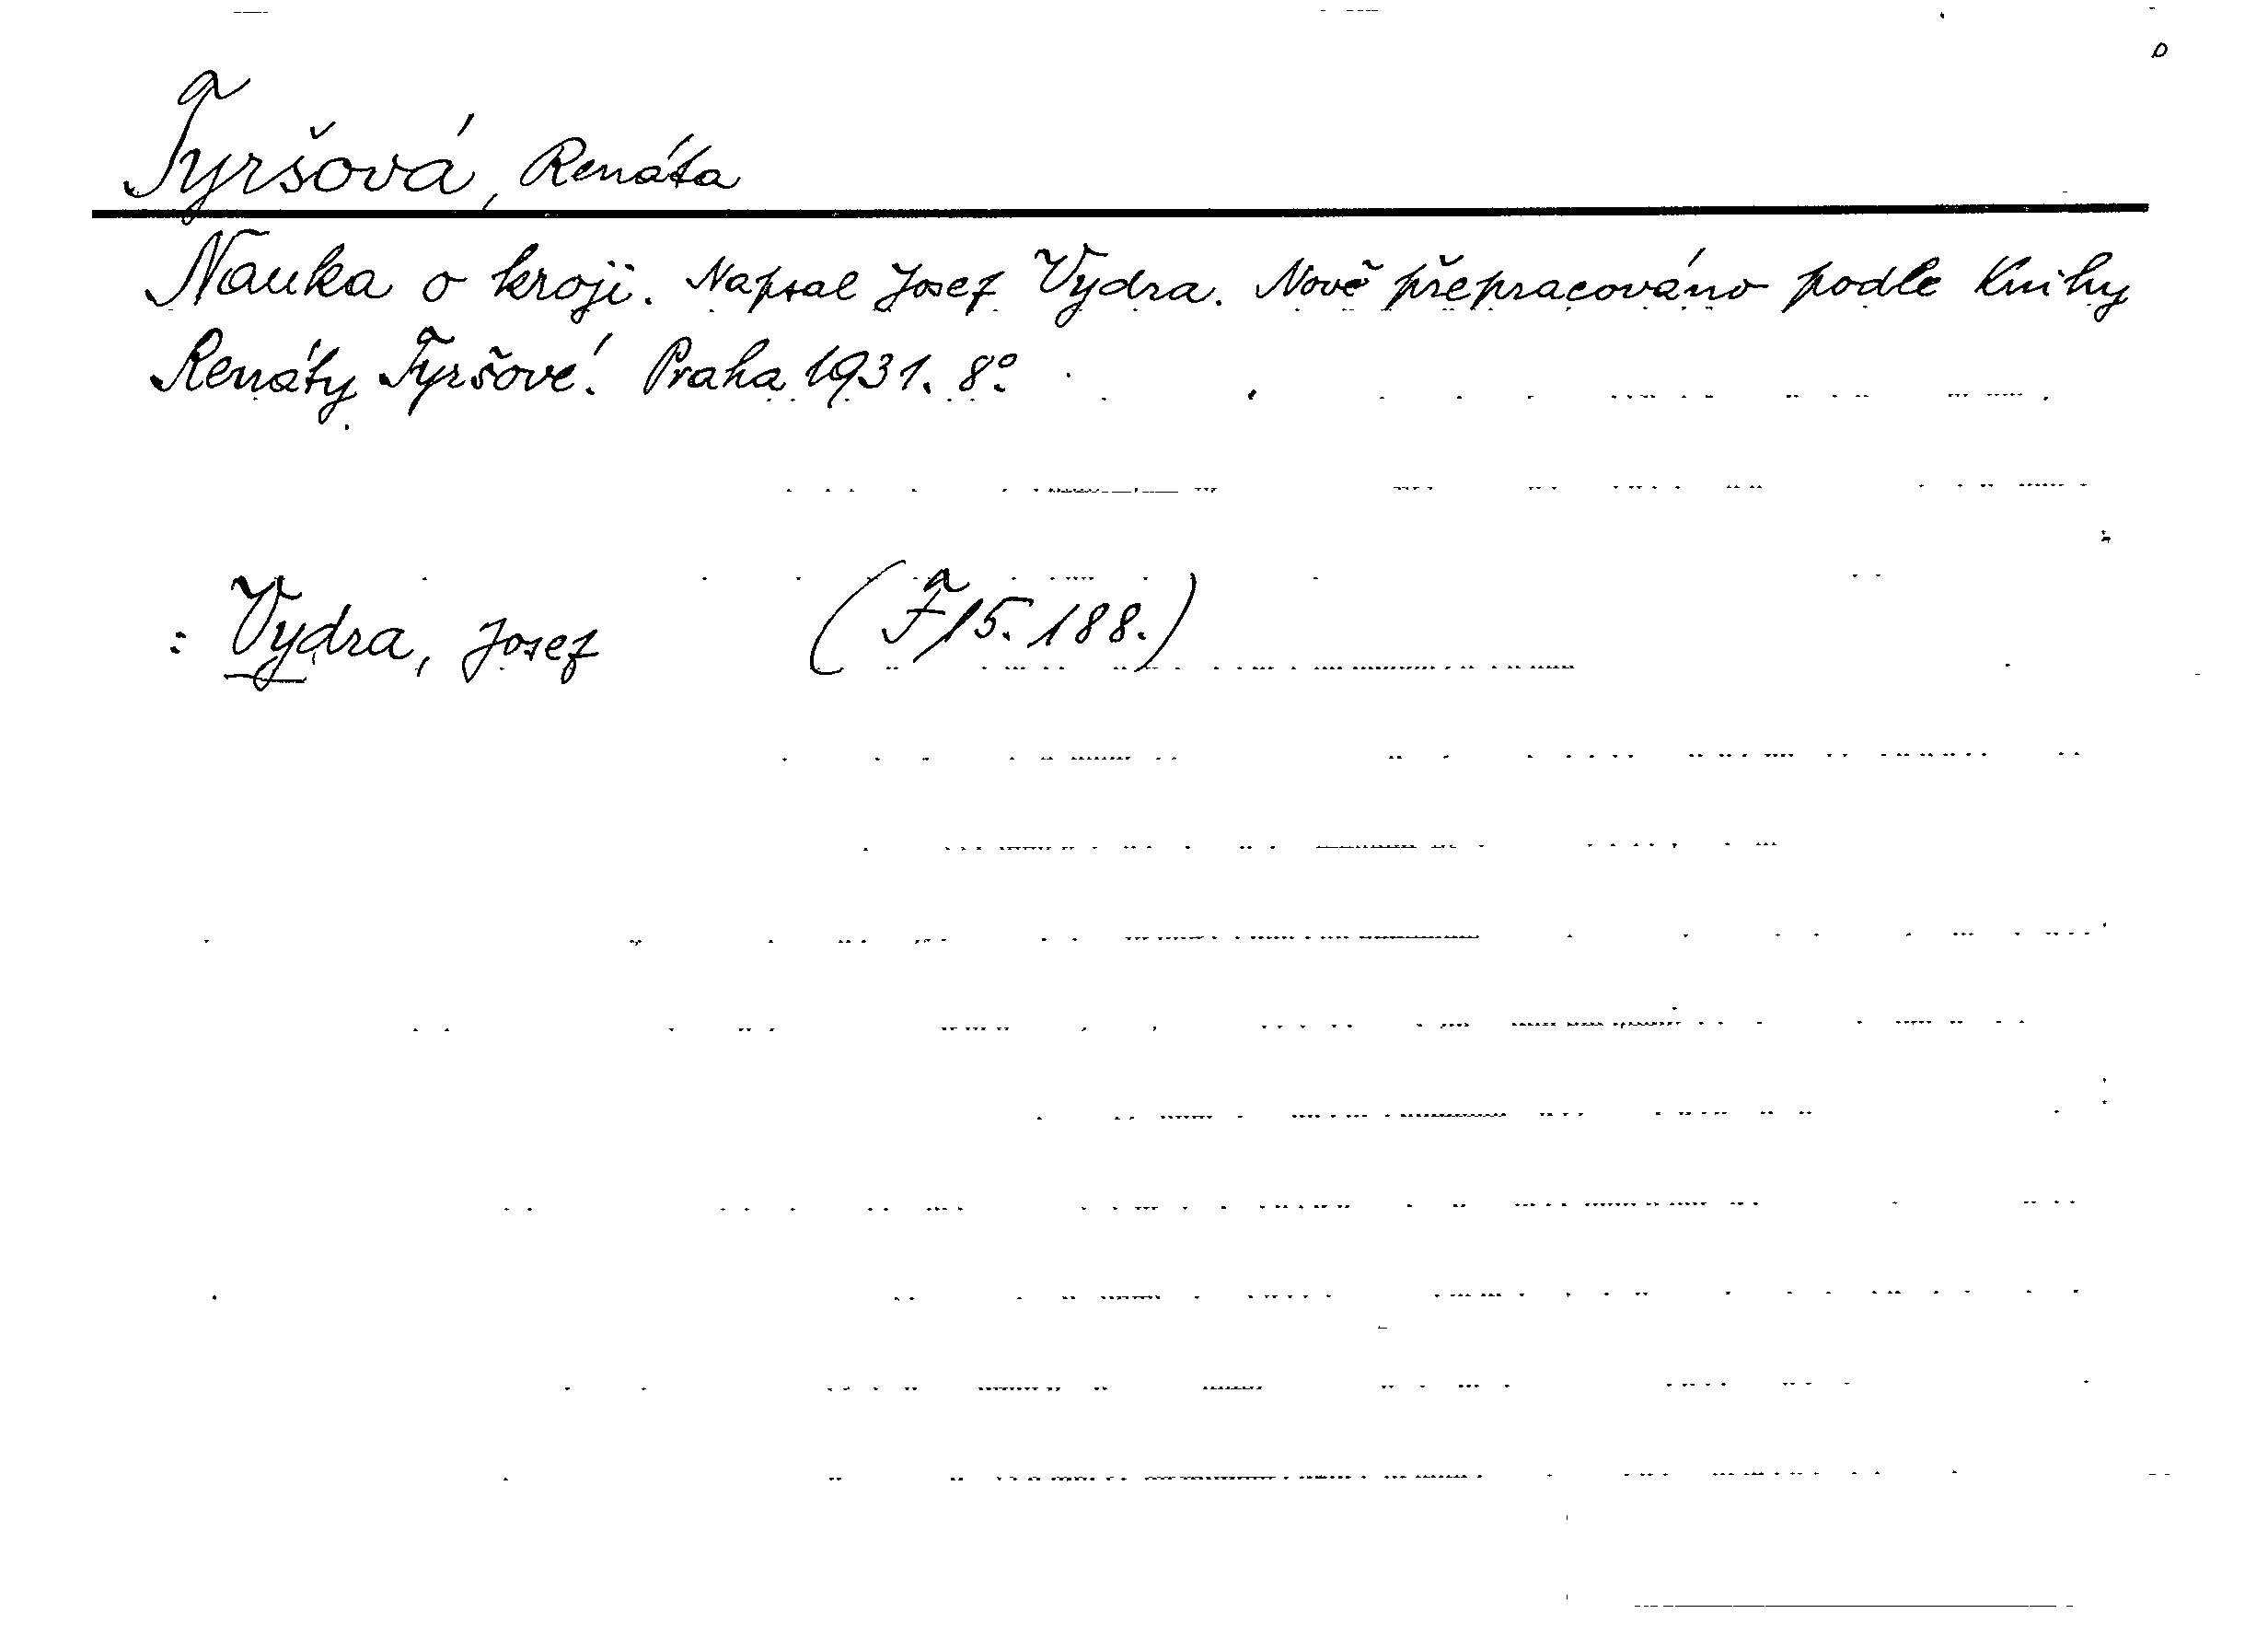 Tyršová, Renáta
Nauka o kroji. Napsal Josef Vydra. Nově přepracováno podle knihy
Renáty Tyršové. Praha 1931. 8°.
: Vydra, Josef (F 15.188.)